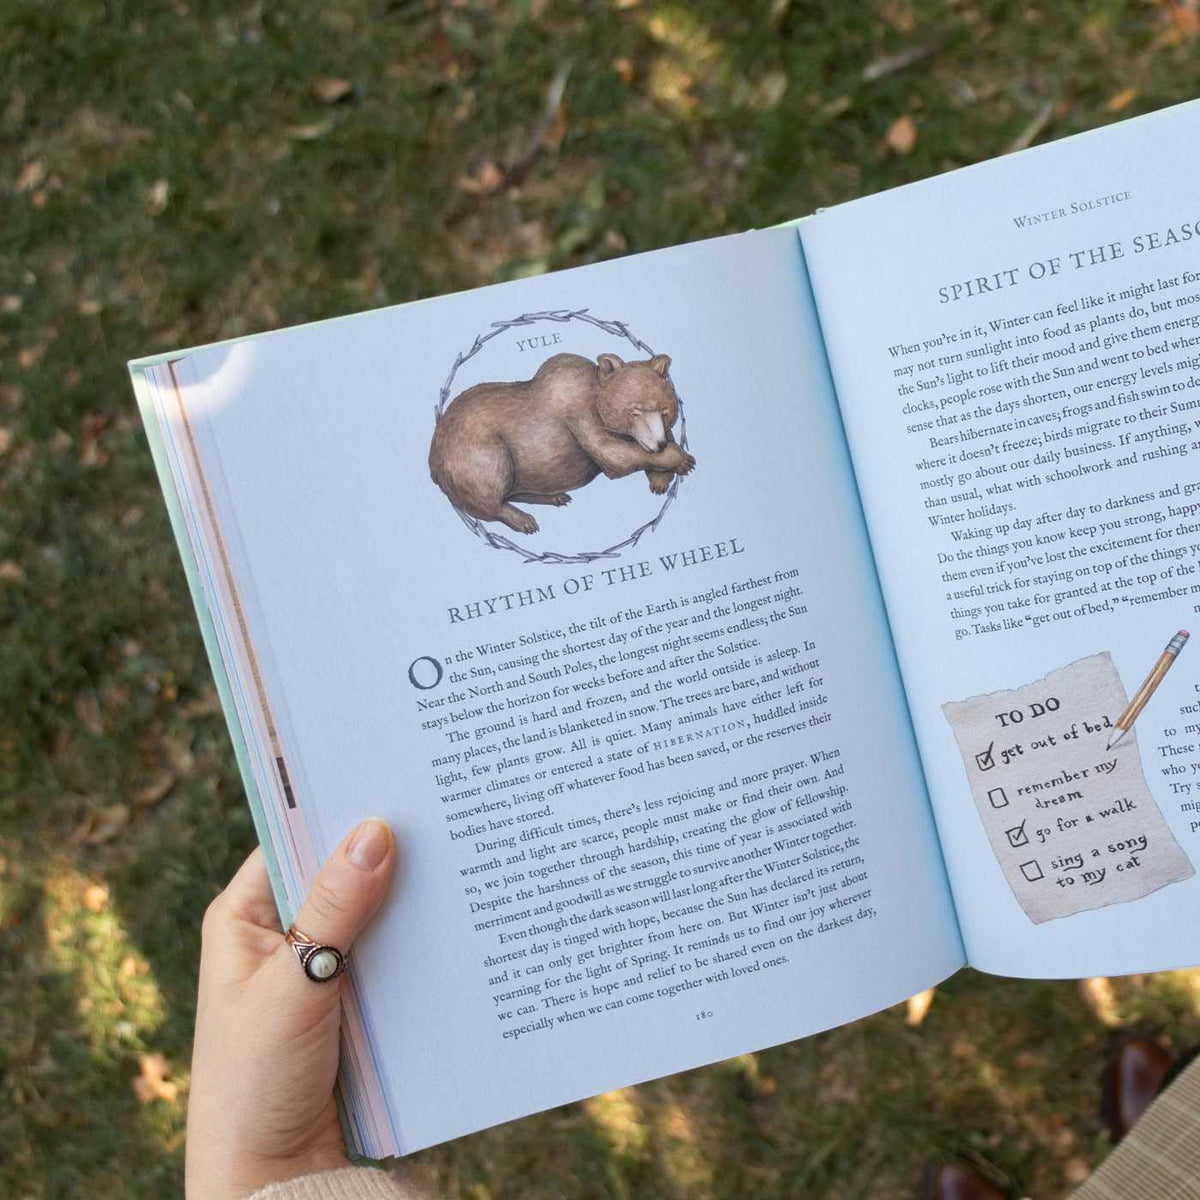 YULE
RHYTHM OF THE WHEEL
On the Winter Solstice, the tilt of the Earth is angled farthest from
the Sun, causing the shortest day of the year and the longest night.
Near the North and South Poles, the longest night seems endless; the Sun
stays below the horizon for weeks before and after the Solstice.
The ground is hard and frozen, and the world outside is asleep. In
many places, the land is blanketed in snow. The trees are bare, and without
light, few plants grow. All is quiet. Many animals have either left for
warmer climates or entered a state of HIBERNATION, huddled inside
somewhere, living off whatever food has been saved, or the reserves their
bodies have stored.
During difficult times, there's less rejoicing and more prayer. When
warmth and light are scarce, people must make or find their own. And
so, we join together through hardship, creating the glow of fellowship.
Despite the harshness of the season, this time of year is associated with
merriment and goodwill as we struggle to survive another Winter together.
Even though the dark season will last long after the Winter Solstice, the
shortest day is tinged with hope, because the Sun has declared its return,
and it can only get brighter from here on. But Winter isn't just about
yearning for the light of Spring. It reminds us to find our joy wherever
we can. There is hope and relief to be shared even on the darkest day,
especially when we can come together with loved ones.
180
WINTER SOLSTICE
SPIRIT OF THE SEASO
When you're in it, Winter can feel like it might last for
may not turn sunlight into food as plants do, but mos
the Sun's light to lift their mood and give them energ
clocks, people rose with the Sun and went to bed wher
sense that as the days shorten, our energy levels mig
Bears hibernate in caves; frogs and fish swim to de
where it doesn't freeze; birds migrate to their Sum
mostly go about our daily business. If anything, w
than usual, what with schoolwork and rushing ar
Winter holidays.
Waking up day after day to darkness and gra
Do the things you know keep you strong, happy
them even if you've lost the excitement for then
a useful trick for staying on top of the things yo
things you take for granted at the top of the l
go. Tasks like "get out of bed," "remember m
TO DO
get out of bed
remember my
dream
go for a walk
sing a song
to my cat
suc
to my
These
who yo
Try s
mig